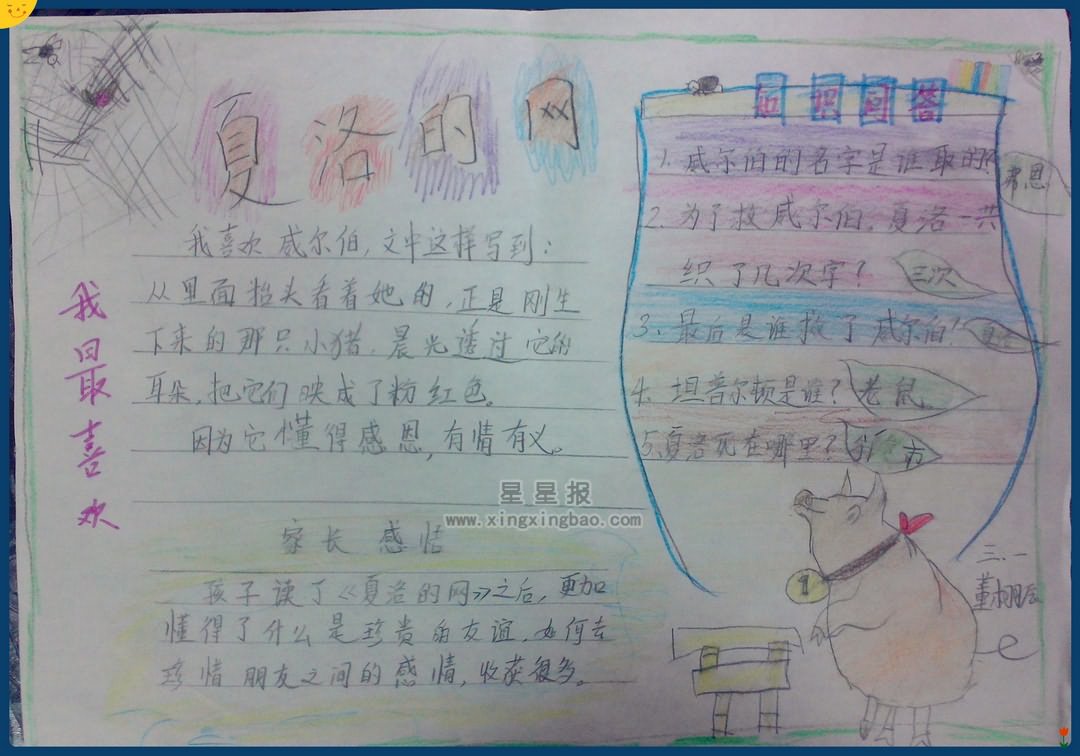 夏洛的网
我最喜欢
我喜欢威尔伯，文中这样写到：
从里面抬头看着她的，正是刚生
下来的那只小猪。晨光透过它的
耳朵，把它们映成了粉红色。
因为它懂得感恩，有情有义。
家长感悟
孩子读了《夏洛的网》之后，更加
懂得了什么是珍贵的友谊，如何去
珍惜朋友之间的感情，收获很多。
知识问答
1. 威尔伯的名字是谁取的？ 弗恩
2. 为了救威尔伯，夏洛一共
织了几次字？ 三次
3. 最后是谁救了威尔伯？ 夏洛
4. 坦普尔顿是谁？ 老鼠
5. 夏洛死在哪里？
三、一
星星报
www.xingxingbao.com